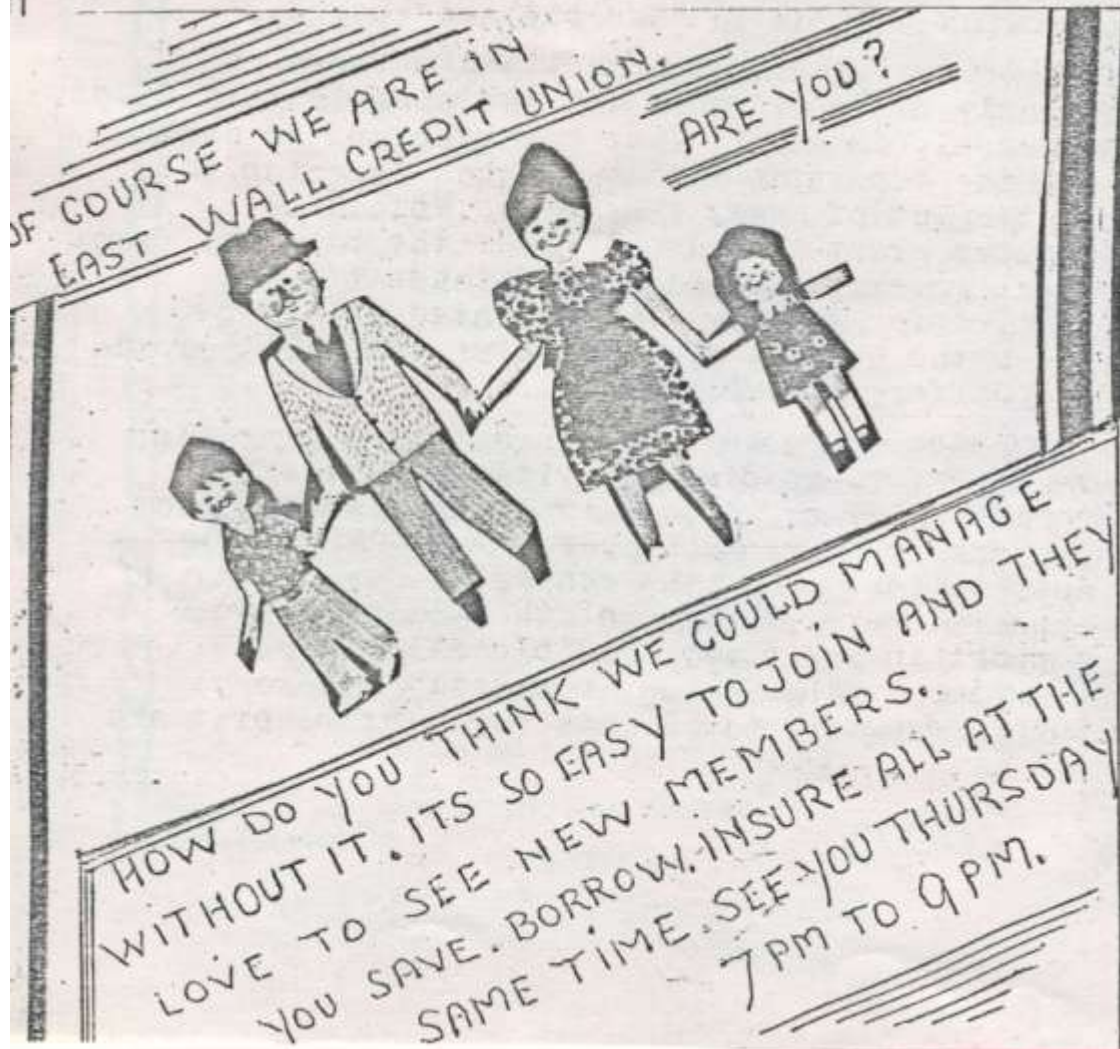 OF COURSE WE ARE IN
EAST WALL CREDIT UNION.
ARE YOU?
HOW DO YOU THINK WE COULD MANAGE
WITHOUT IT. ITS SO EASY TO JOIN AND THEY
LOVE TO SEE NEW MEMBERS.
YOU SAVE. BORROW. INSURE ALL AT THE
SAME TIME. SEE YOU THURSDAY
7PM TO 9PM.